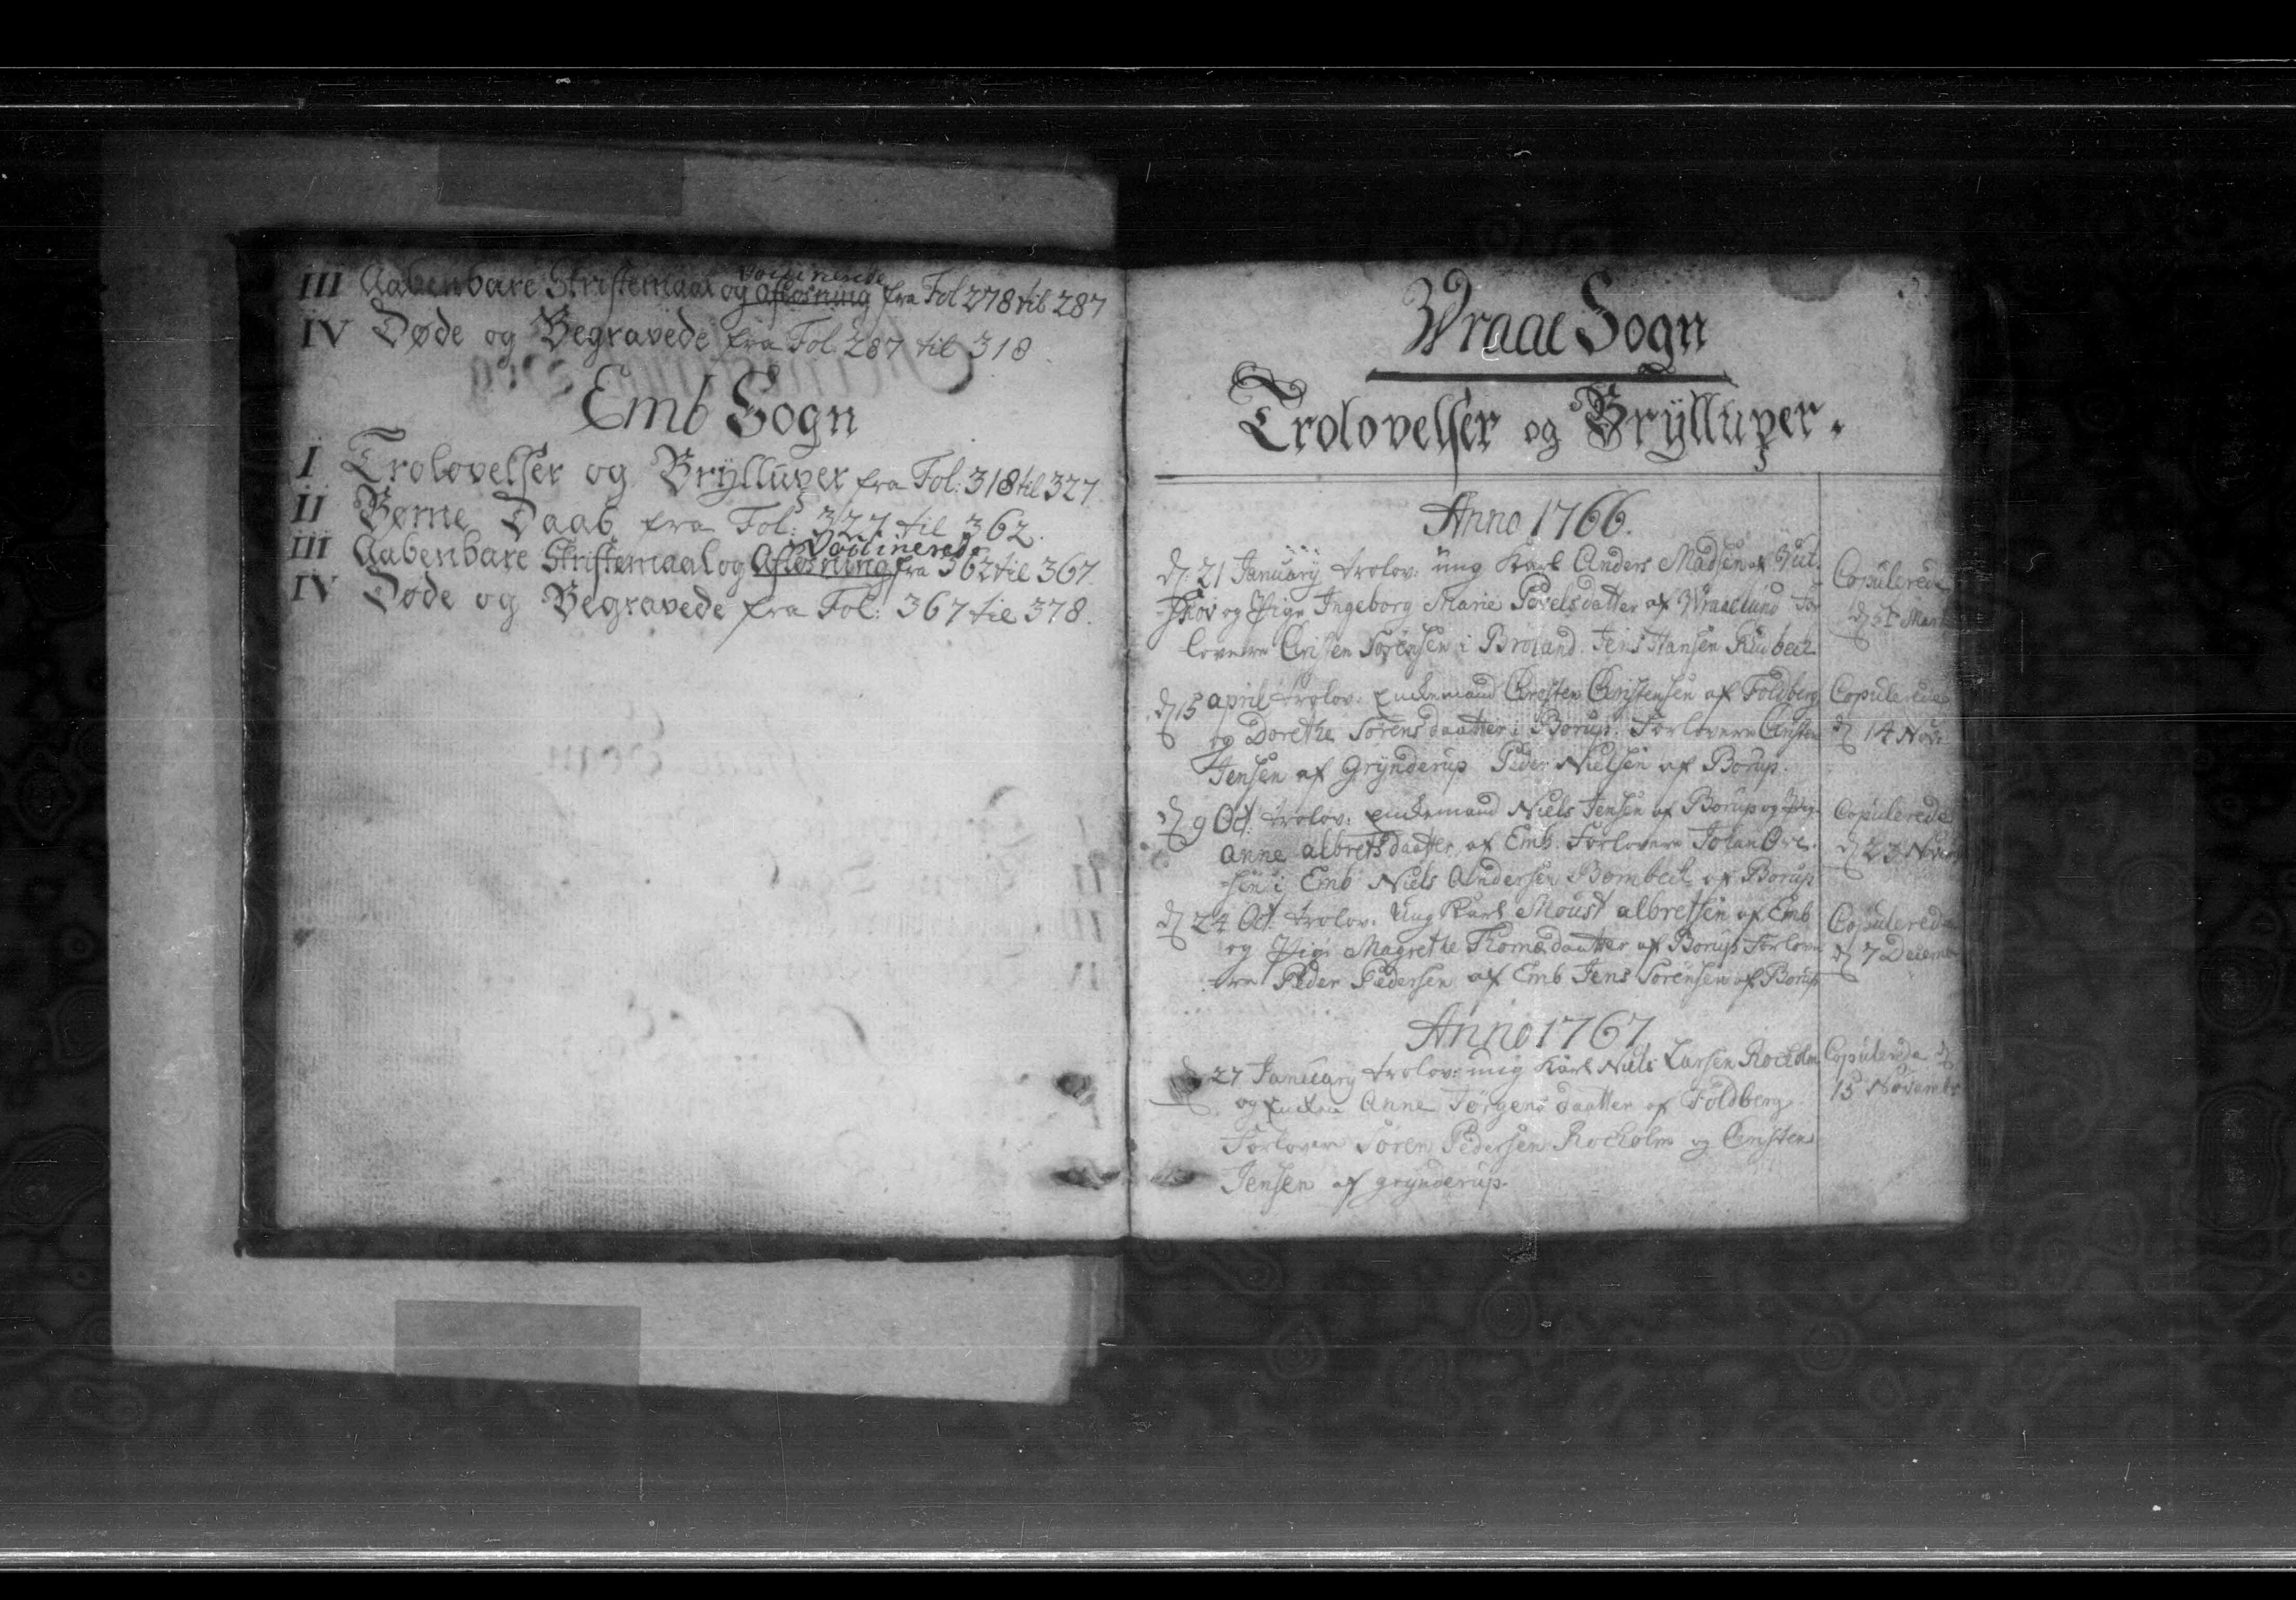 III Aabenbare Skriftemaal og Afløsning fra Fol 278 til 287
IV Døde og Begravede fra Fol 287 til 318
Emb Sogn
I Trolovelser og Brÿlluper fra Fol: 318 til 327
II Børne Daab fra Fol: 327 til 362.
III Aabenbare Skriftemaal og Afløsning fra 362 til 367.
IV Døde og Begravede fra Fol: 367 til 378.
Wraae Sogn
Trolovelser og Brÿlluper.
Anno 1766.
d: 21 Januarÿ trolov: ung Karl Anders Madsen af
skov og Pige Ingeborg Marie Povelsdatter af Wraaelund For
lovere Cristen Sørensen i Broland. Jens Hansen
Copulerede
d
d 15 april trolov. Enkemand Chresten Christensen af Foldberg
og Dorethe Sørensdaatter i Borup. Forlovere Cristen
Jensen af Grÿnderup Peder Nielsen af Borup.
Copulerede
d 14 Nov:
d 9 Oct. trolov. Enkemand Niels Jensen af Borup og
Anne albretsdaatter af Emb. Forlovere Johan
sen i Emb Niels Andersen Bombeck af Borup
Copulerede
d 23
d 24 Oct. trolov. Ung Karl Moust albretsen af Emb
og Pige Magrethe Thomædaatter af Borup Forlov
ere Peder Pedersen af Emb Jens Sørensen af Borup
Copulerede
d 7 Decemb
Anno 1767
d 27 Januarÿ trolov: ung Karl Niels Larsen Rocholm
og Enken Anne Jørgens daatter af Foldberg
Forlovere Søren Pedersen Rocholm og Cristen
Jensen af grÿnderup.
Copulerede d
15 November